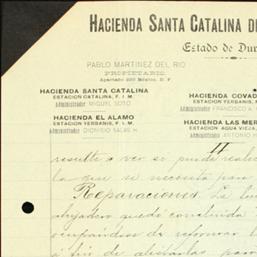 HACIENDA SANTA CATALINA D
Estado de Dur
PABLO MARTINEZ DEL RIO
PROPIETARIO.
Apartado México, D. F.
HACIENDA SANTA CATALINA
ESTACION CATALINA, F. I. M.
Administrador MIGUEL SOTO
HACIENDA COVAD
ESTACION YERBANIS, F.
Administrador FRANCISCO A.
HACIENDA EL ALAMO
ESTACION YERBANIS, F. I. M.
Administrador DIONISIO SALAS H.
HACIENDA LAS MER
ESTACION AGUA VIEJA,
Administrador ANTONIO
II
resulte a ver si puede
lo que se necesita para
Reparaciones. La
quedó concluida
de reformar
a fin de para